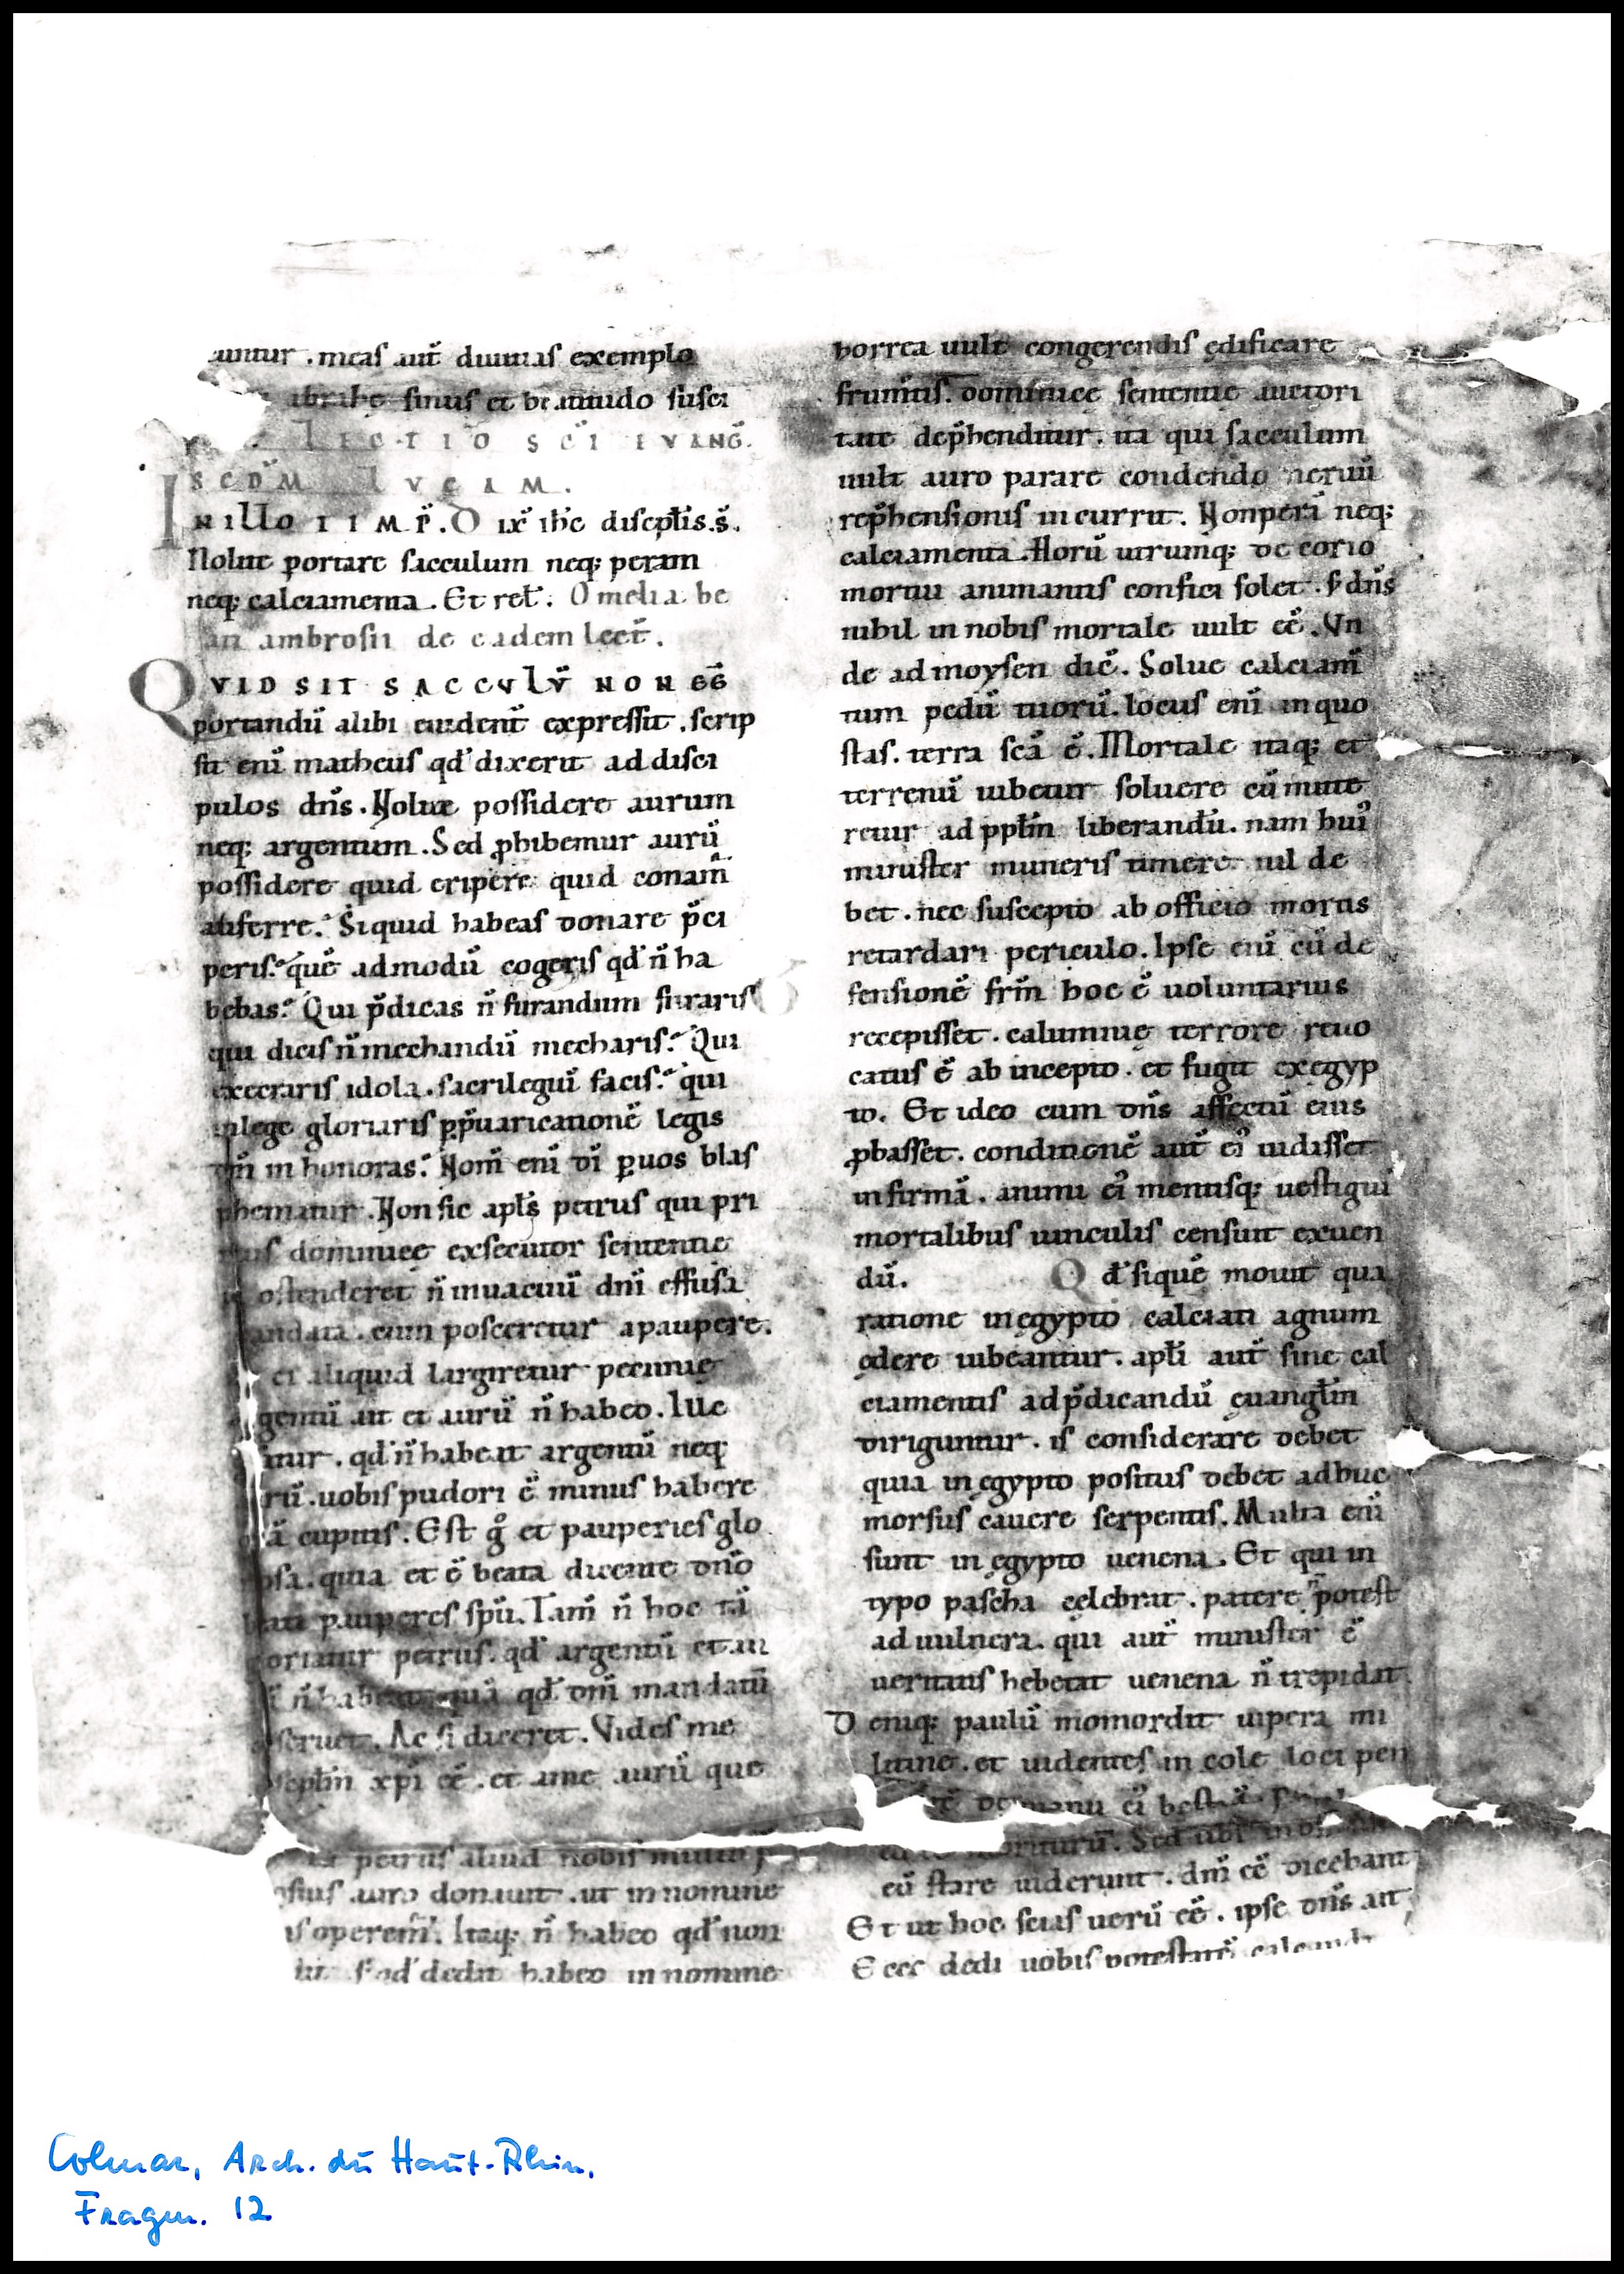 untur . meas aut̄ diuitias exemplo
abrahę sinus et beatitudo susci
LECTIO SC̄I EVANḠ.
SCDM̄ LVCAM.
IN ILLO TIMP̄. Dix̄ ih̄c discipl̄is. s̄.
Nolite portare sacculum neq; peram
neq; calciamenta. Et rel̄. Omelia be
ati ambrosii de eadem lect̄.
QVID SIT SACCVLV̄ NON Eē
portandū alibi euident̄ expressit. scrip
sit enī matheus qd̄ dixerit ad disci
pulos dn̄s. Nolite possidere aurum
neq; argentum. Sed ꝓhibemur aurū
possidere quid eripere quid conam̄
auferre? Siquid habeas donare p̄ci
peris? quē admodū cogeris qd̄ n̄ ha
bebas? Qui p̄dicas n̄ furandum furaris
qui dicis n̄ mechandū mecharis? Qui
execraris idola. sacrilegiū facis? qui
in lege gloriaris ꝑp̄uaricationē legis
dm̄ in honoras? Nom̄ enī di ꝑ uos blas
phematur. Non sic apl̄s petrus qui pri
mus dominicę exsecutor sententię
ostenderet n̄ in uacuū dn̄i effusa
mandata. cum posceretur a paupere.
ei aliquid largiretur pecunię
argentū ait et aurū n̄ habeo. Glo
riatur. qd̄ n̄ habeat argentū neq;
aurū. uobis pudori ē minus habere
quā cupitis. Est gͦ et pauperies glo
riosa. quia et ē beata dicente dn̄o
beati pauperes spū. Tam̄ n̄ hoc tā
gloriatur petrus. qd̄ argentū et au
rū n̄ habeat. quā qd̄ dn̄i mandatū
obseruet. Ac si diceret. Vides me
discipl̄m xp̄i eē. et a me aurū que
petrus aliud nobis
auro donauit. ut in nomine
is operem̄. Itaq; n̄ habeo qd̄ non
qd̄ dedit habeo in nomine
horrea uult congerendis ędificare
frum̄tis. dominicę sententię auctori
tate dep̄henditur. ita qui sacculum
uult auro parare condendo
rep̄hensionis incurrit. Non perā neq;
calciamenta. Horū utrumq; de corio
mortui animantis confici solet. s; dn̄s
nihil in nobis mortale uult eē. Vn
de ad moysen dic̄. Solue calciam̄
tum pedū tuorū. locus enī in quo
stas. terra sc̄a ē. Mortale itaq; et
terrenū iubetur soluere cū mitte
retur ad ppl̄m liberandū. nam hui᷒
minister muneris timere nil de
bet. nec suscepto ab officio mortis
retardari periculo. Ipse enī cū de
fensionē fr̄m hoc ē uoluntarius
recepisset. calumnię terrore reuo
catus ē ab incepto. et fugit ex egyp
to. Et ideo cum dn̄s affectū eius
ꝓbasset. conditionē aut̄ ei᷒ uidisset
infirmā. animi ei᷒ mentisq; uestigiū
mortalibus uinculis censuit exuen
dū. Qd̄ siquē mouit qua
ratione in ęgypto calciati agnum
ędere iubeantur. apl̄i aut̄ sine cal
ciamentis ad p̄dicandū ęuangl̄m
diriguntur. is considerare debet
quia in ęgypto positus debet adhuc
morsus cauere serpentis. Multa enī
sunt in ęgypto uenena. Et qui in
typo pascha celebrat. patere potest
ad uulnera. qui aut̄ minister ē
ueritatis hebetat uenena n̄ trepidat
Deniq; paulū momordit uipera mi
litine. et uidentes incole loci pen
dere de manu ei᷒ bestiā.
moriturū. Sed ubi
eū stare uiderunt. dm̄ eē dicebant
Et ut hoc scias uerū eē. ipse dn̄s ait
Ecce dedi uobis potestatē calcandi
Colmar, Arch. du Haut-Rhin,
Fragm. 12